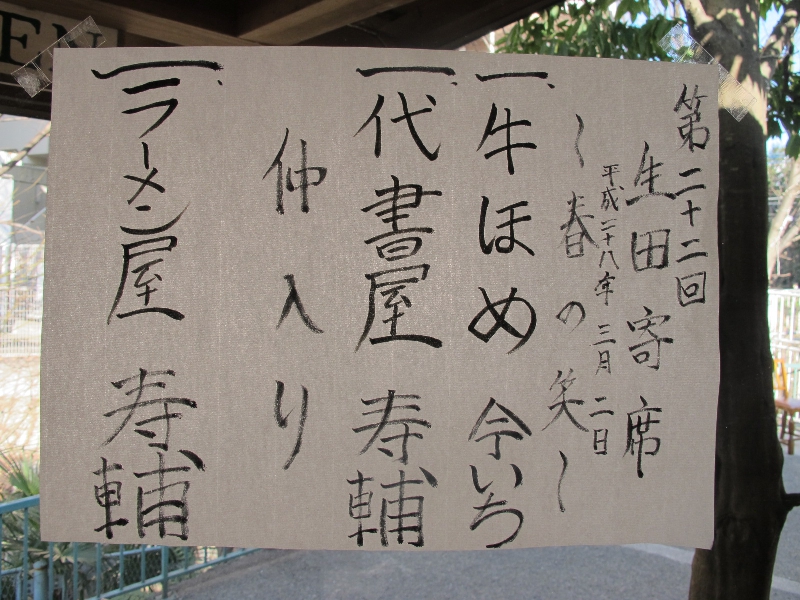 第二十二回
生田寄席
平成二十八年 三月 二日
～春の笑～
一、牛ほめ 今いち
一、代書屋 寿輔
仲入り
一、ラーメン屋 寿輔
EN